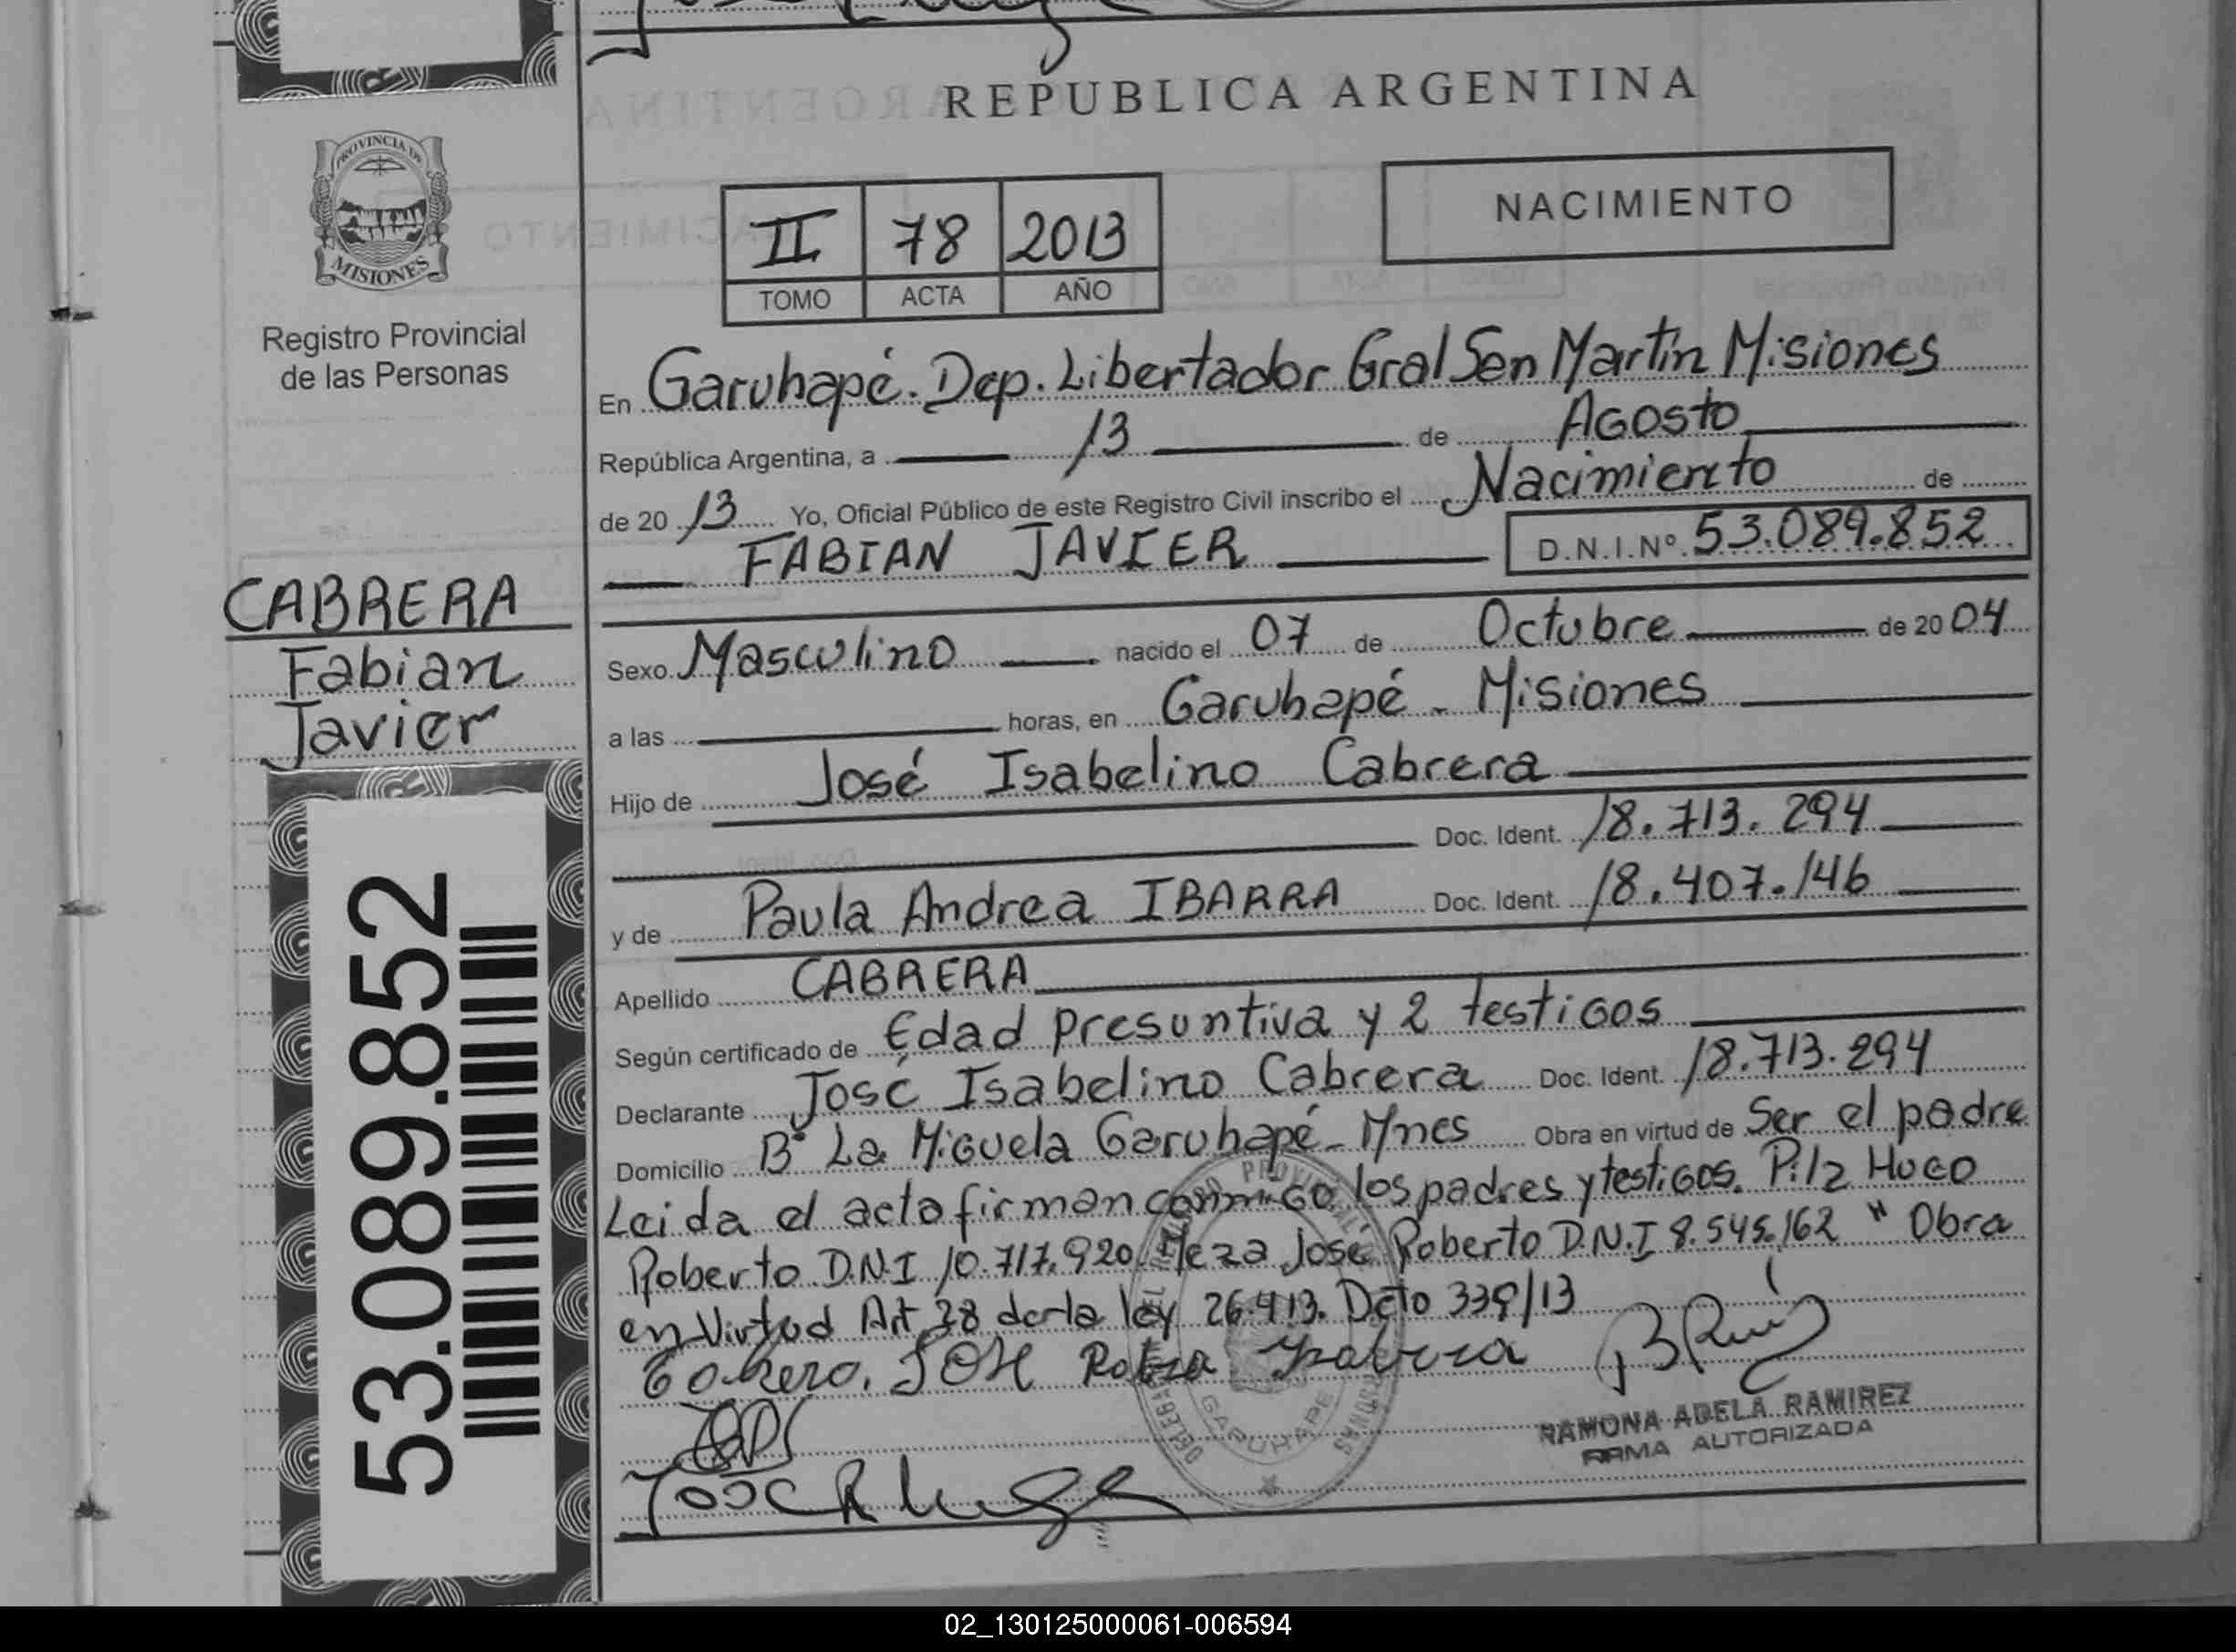 REPUBLICA ARGENTINA
PROVINCIA DE
MISIONES
Registro Provincial
de las Personas
NACIMIENTO
II 78 2013
TOMO ACTA AÑO
En Garuhapé. Dep. Libertador Gral San Martin Misiones
República Argentina, a 13 de Agosto
de 20 13 Yo, Oficial Público de este Registro Civil inscribo el Nacimiento de
FABIAN JAVIER D.N.I.Nº 53.089.852
CABRERA
Fabian
Javier
Sexo Masculino nacido el 07 de Octubre de 20 04
a las horas, en Garuhapé - Misiones
Hijo de José Isabelino Cabrera
Doc. Ident. 18.713.294
y de Paula Andrea IBARRA Doc. Ident. 18.407.146
Apellido CABRERA
Según certificado de Edad presuntiva y 2 testigos
Declarante José Isabelino Cabrera Doc. Ident. 18.713.294
Domicilio Bº La Miguela Garuhapé - Mnes Obra en virtud de Ser el padre
Leida el acta firman conmigo los padres y testigos. Pilz Hugo
Roberto D.N.I 10.717.920. Meza José Roberto D.N.I 8.545.162 " Obra
en Virtud Art 28 de la ley 26.413. Dcto 339/13
José
RAMONA ADELA RAMIREZ
FIRMA AUTORIZADA
GARUHAPE
53.089.852
02_130125000061-006594